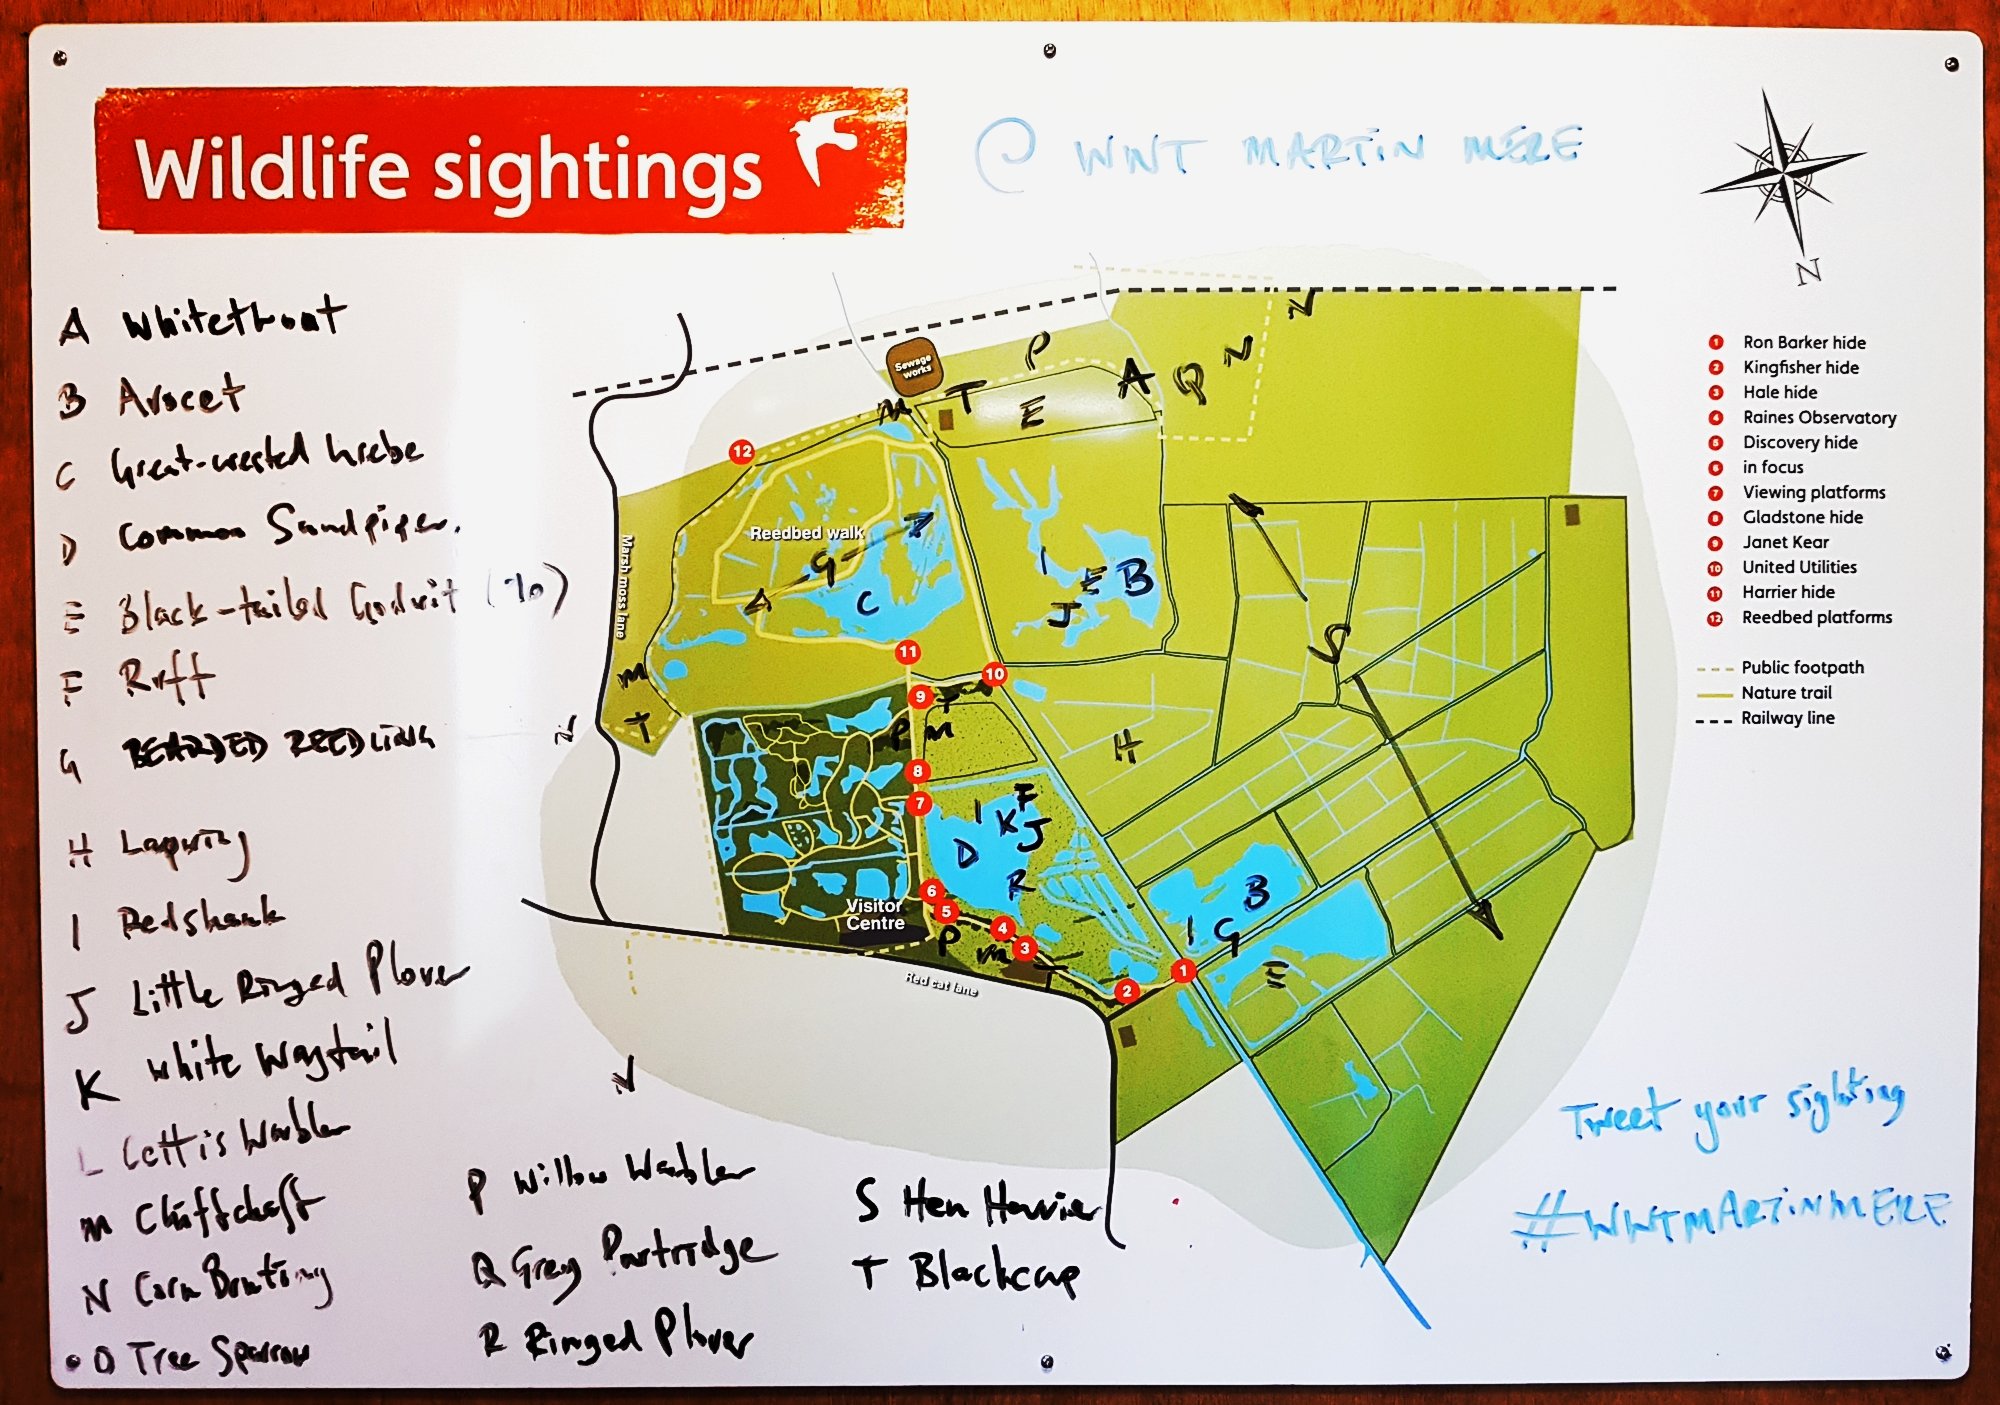 Wildlife sightings
@ WWT MARTIN MERE
N
A Whitethroat
B Avocet
C Great-crested Grebe
D Common Sandpiper.
E Black-tailed Godwit
F Ruff
G BEARDED REEDLING
H Lapwing
I Redshank
J Little Ringed Plover
K White Wagtail
L Cettis Warbler
M Chiffchaff
N Corn Bunting
O Tree Sparrow
P Willow Warbler
Q Grey Partridge
R Ringed Plover
S Hen Harrier
T Blackcap
1 Ron Barker hide
2 Kingfisher hide
3 Hale hide
4 Raines Observatory
5 Discovery hide
6 in focus
7 Viewing platforms
8 Gladstone hide
9 Janet Kear
10 United Utilities
11 Harrier hide
12 Reedbed platforms
Public footpath
Nature trail
Railway line
Sewage
works
P
N
N
T
E
A
Q
M
12
Reedbed walk
G
C
I
E
B
J
S
Marsh moss lane
M
T
N
11
10
9
T
P
M
H
8
7
I
F
K
J
D
R
6
5
4
3
2
1
Visitor
Centre
P
M
T
I
G
B
E
Red cat lane
N
Tweet your sighting
#WWTMARTINMERE